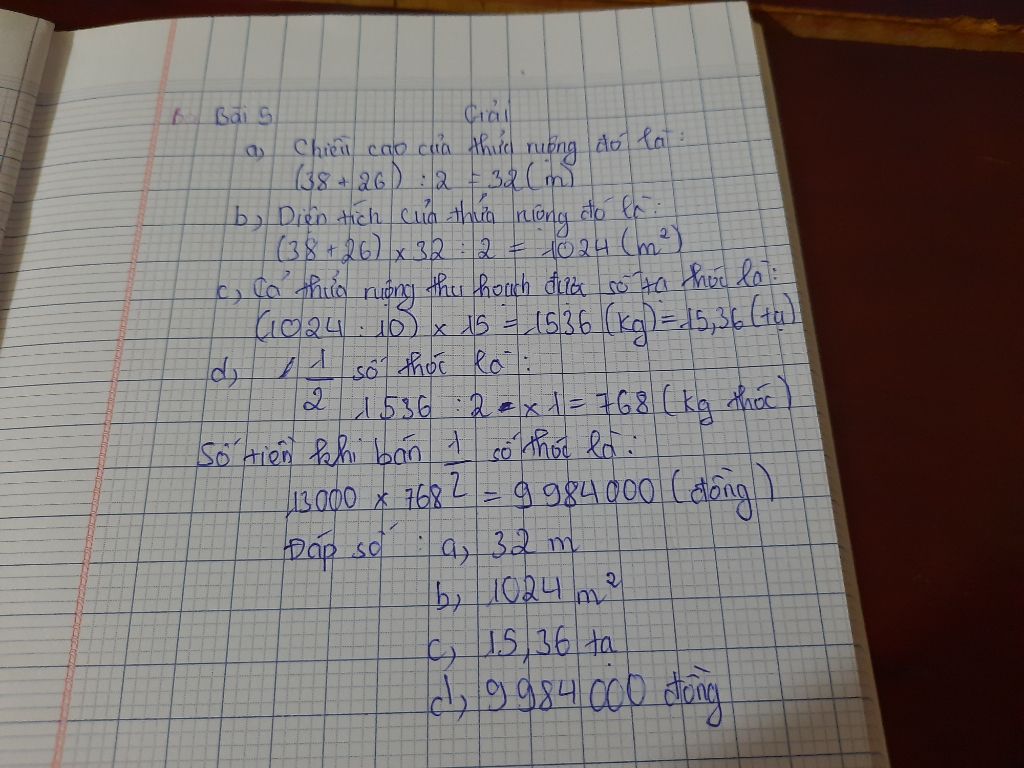 Bài 5 Giải
a, Chiều cao của thửa ruộng đó là:
(38 + 26) : 2 = 32 (m)
b, Diện tích của thửa ruộng đó là:
(38 + 26) x 32 : 2 = 1024 (m²)
c, Cả thửa ruộng thu hoạch được số tạ thóc là:
(1024 : 10) x 15 = 1536 (kg) = 15,36 (tạ)
d, 1/2 số thóc là:
1536 : 2 x 1 = 768 (kg thóc)
Số tiền khi bán 1/2 số thóc là:
13000 x 768 = 9984000 (đồng)
Đáp số : a, 32 m
b, 1024 m²
c, 15,36 tạ
d, 9984000 đồng